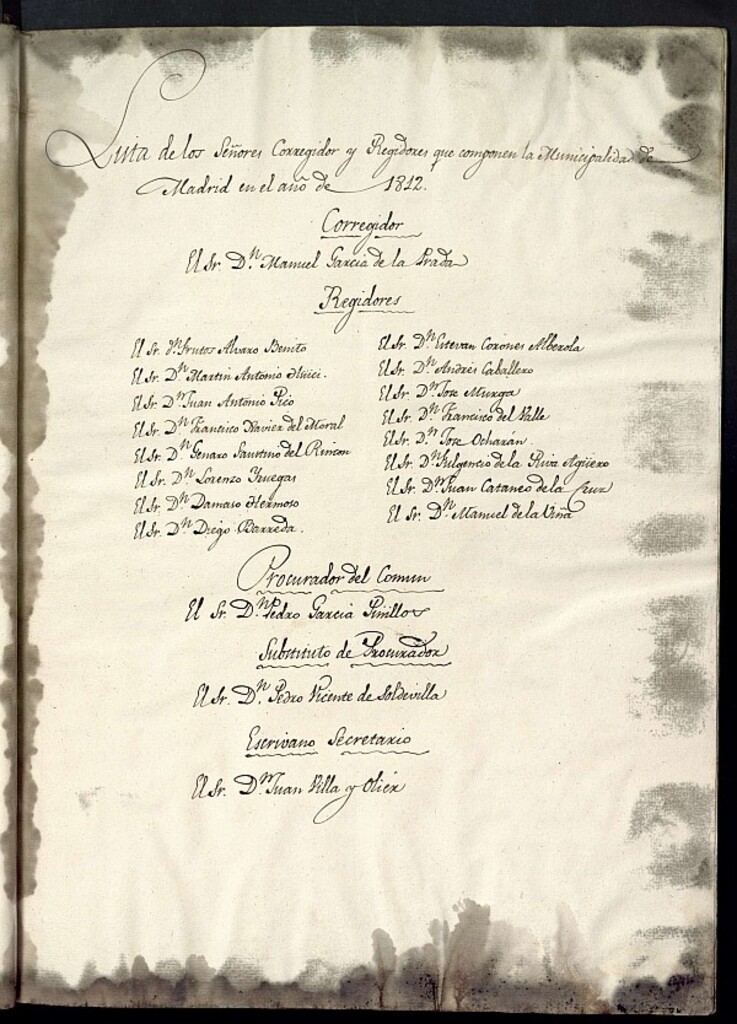 Lista de los Señores Corregidor y Regidores que componen la Municipalidad de
Madrid en el año de 1812.
Corregidor
El Sr. Dn. Manuel Garcia de la Prada
Regidores
El Sr. Dn. Frutos Alvaro Benito
El Sr. Dn. Martin Antonio Huici.
El Sr. Dn. Juan Antonio Pico
El Sr. Dn. Francisco Xavier del Moral
El Sr. Dn. Genaro Faustino del Rincon
El Sr. Dn. Lorenzo Yruegas
El Sr. Dn. Damaso Hermoso
El Sr. Dn. Diego Barreda.
El Sr. Dn. Estevan Corones Alberola
El Sr. Dn. Andrés Caballero
El Sr. Dn. Jose Murga
El Sr. Dn. Francisco del Valle
El Sr. Dn. Jose Ocharán.
El Sr. Dn. Fulgencio de la Riva Agüero
El Sr. Dn. Juan Cataneo de la Cruz
El Sr. Dn. Manuel de la Viña
Procurador del Comun
El Sr. Dn. Pedro Garcia Pinillos
Substituto de Procurador
El Sr. Dn. Pedro Vicente de Soldevilla
Escrivano Secretario
El Sr. Dn. Juan Villa y Olier